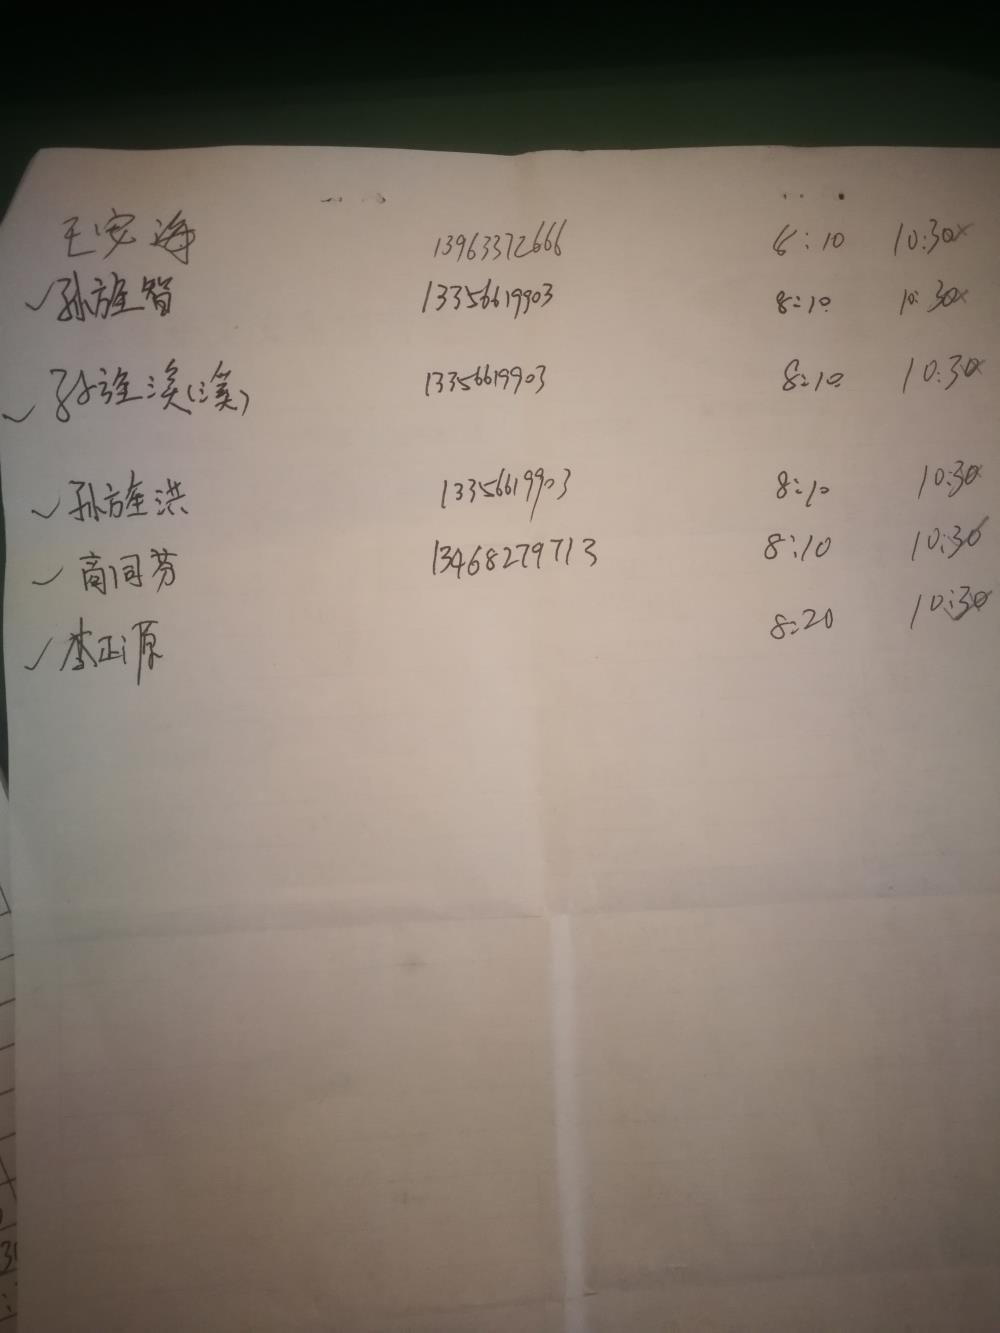 王安海 13963372666 8:10 10:30
✓孙旌智 13356619903 8:10 10:30
✓孙旌渼(渼) 13356619903 8:10 10:30
✓孙旌洪 13356619903 8:10 10:30
✓商同芬 13468279713 8:10 10:30
✓李正源 8:20 10:30